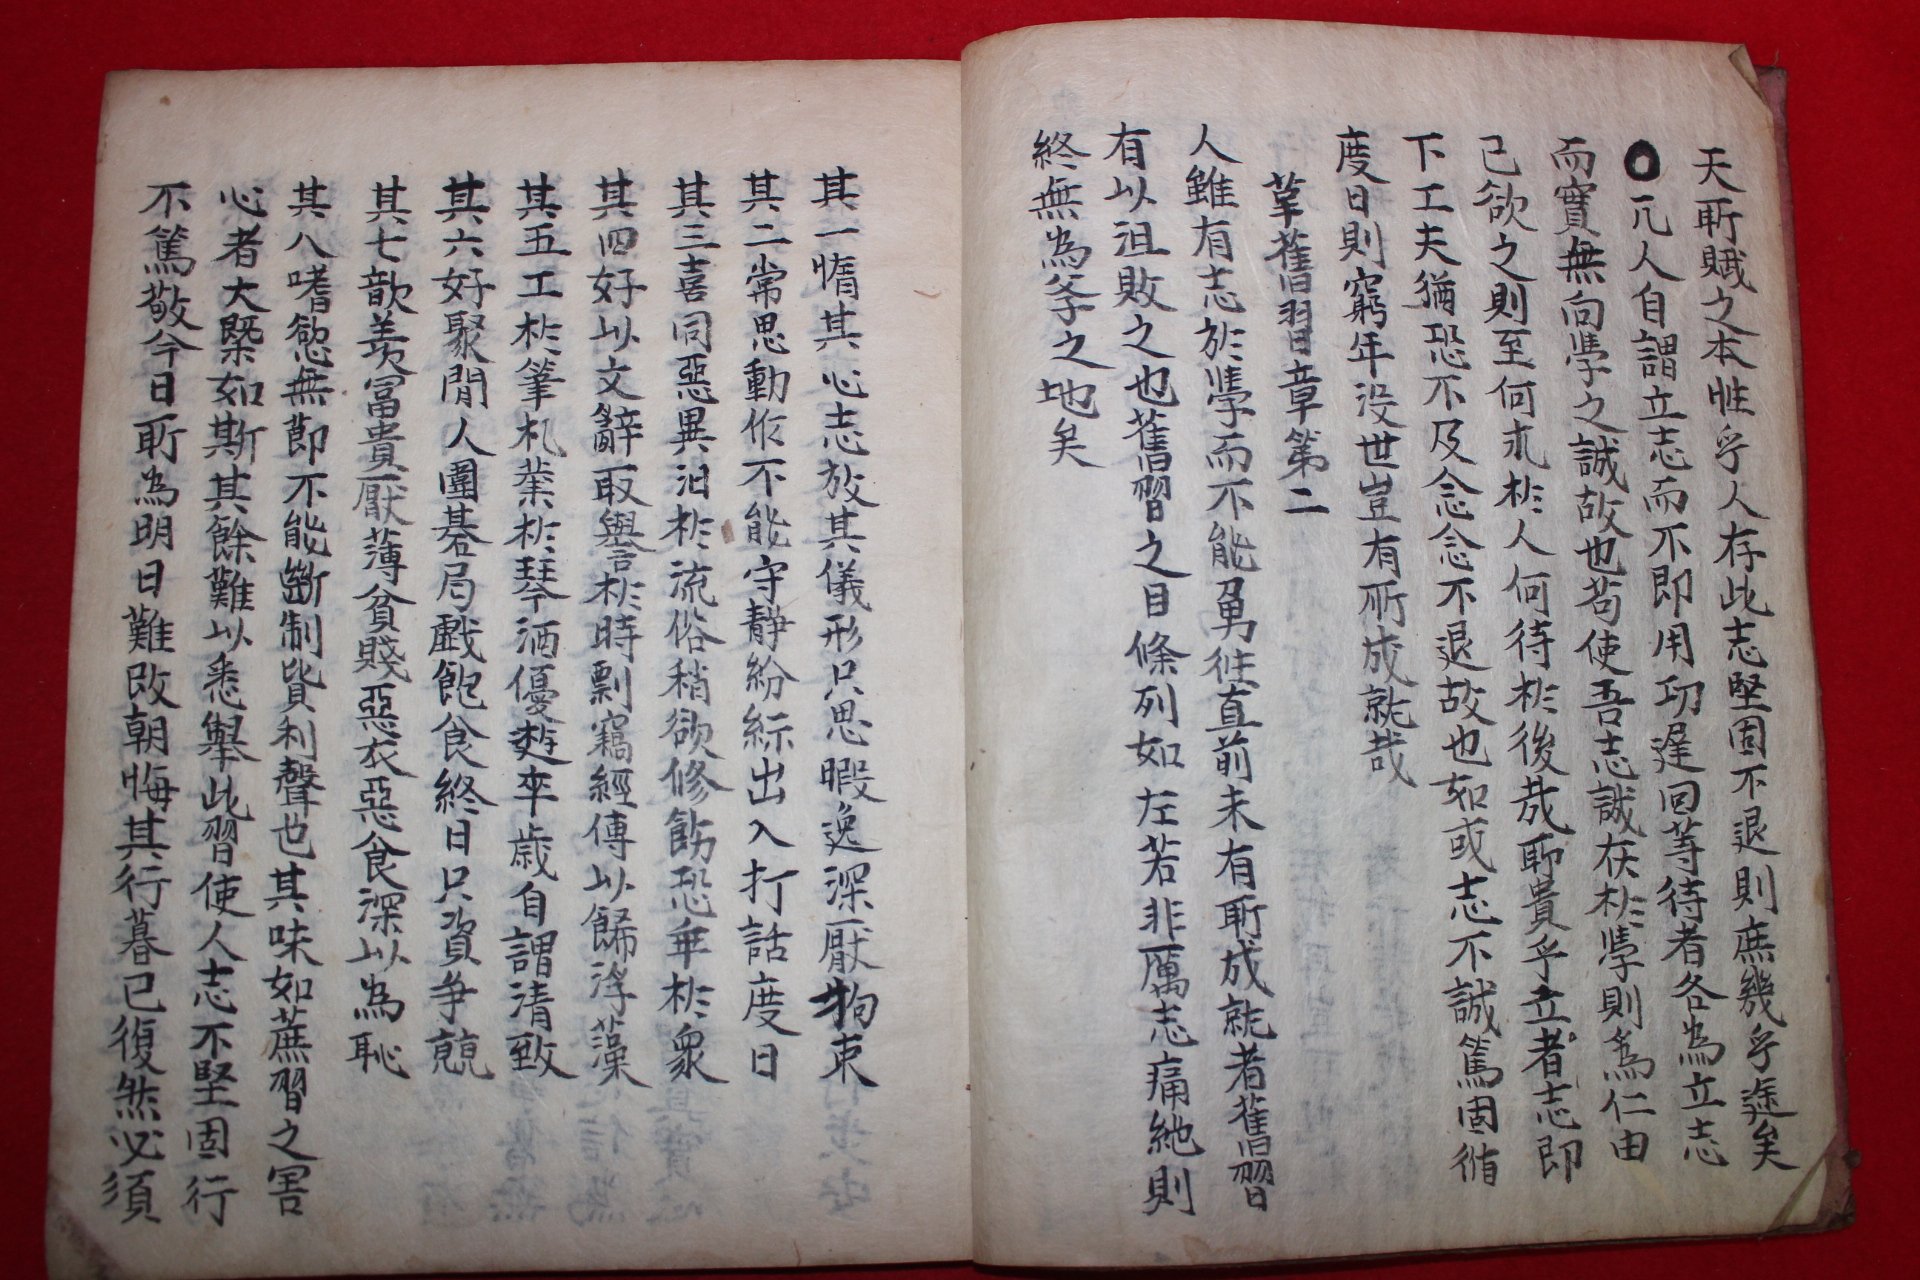 天所賦之本性乎人存此志堅固不退則庶幾乎道矣
○凡人自謂立志而不即用功遲回等待者名為立志
而實無向學之誠故也苟使吾志誠在於學則為仁由
己欲之則至何求於人何待於後哉所貴乎立者志即
下工夫猶恐不及念念不退故也如或志不誠篤因循
度日則窮年没世豈有所成就哉
革舊習章第二
人雖有志於學而不能勇往直前未有所成就者舊習
有以沮敗之也舊習之目條列如左若非厲志痛絶則
終無為學之地矣
其一惰其心志放其儀形只思暇逸深厭拘束
其二常思動作不能守靜紛紜出入打話度日
其三喜同惡異汩於流俗稍欲修飭恐乖於衆
其四好以文辭取譽於時剽竊經傳以飾浮藻
其五工於筆札業於琴酒優遊卒歲自謂清致
其六好聚閒人圍碁局戲飽食終日只資爭競
其七歆羨冨貴厭薄貧賤惡衣惡食深以為恥
其八嗜慾無節不能斷制貨利聲也其味如蔗習之害
心者大槩如斯其餘難以悉擧此習使人志不堅固行
不篤敬今日所為明日難改朝悔其行暮已復然必須